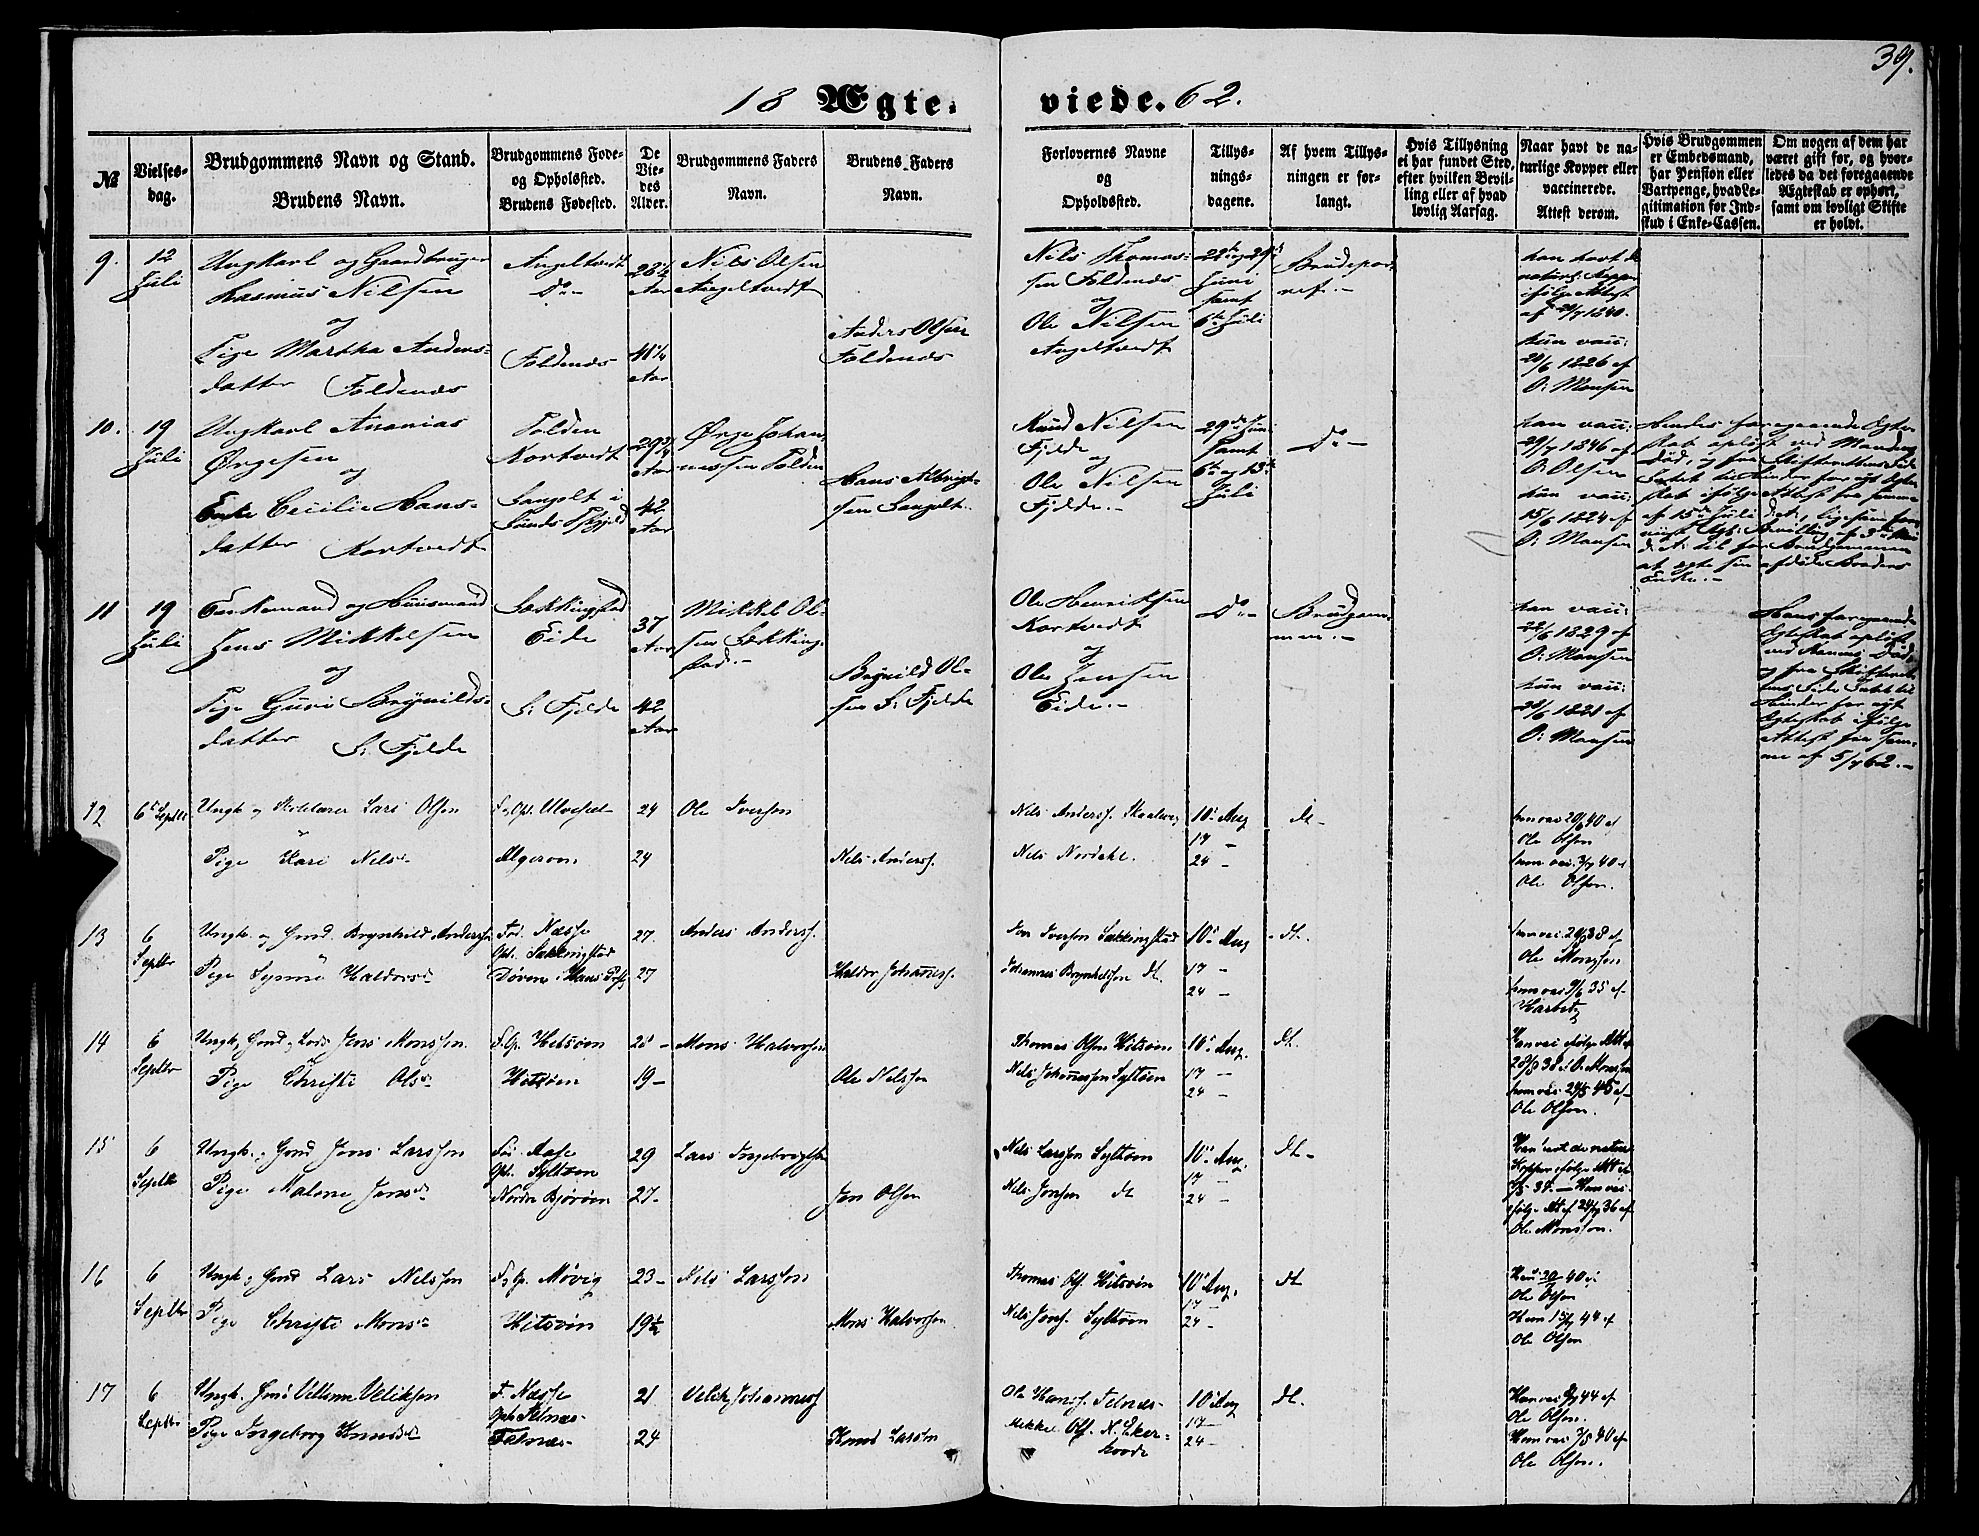 39.
18 Ægte-
viede. 62.
№
Vielses-
dag.
Brudgommens Navn og Stand.
Brudens Navn.
Brudgommens Føde-
og Opholsted.
Brudens Fødested.
De
Vie-
des
Alder.
Brudgommens Faders
Navn.
Brudens Faders
Navn.
Forlovernes Navne
og
Opholdsted.
Tillys-
nings-
dagene.
Af hvem Tillys-
ningen er for-
langt.
Hvis Tillysning
ei har fundet Sted,
efter hvilken Bevil-
ling eller af hvad
lovlig Aarsag.
Naar havt de na-
turlige Kopper eller
vaccinerede.
Attest derom.
Hvis Brudgommen
er Embedsmand,
har Pension eller
Vartpenge, hvad Le-
gitimation for Ind-
skud i Enke-Cassen.
Om nogen af dem har
været gift før, og hvor-
ledes da det foregaaende
Ægteskab er ophørt,
samt om lovligt Skifte
er holdt.
9.
12
Juli
Ungkarl og Gaardbruger
Rasmus Nilsen
og
Pige Martha Anders-
datter Foldenæs
Angeltvedt
Do-
Foldenæs
26 1/4
Aar
41 1/4
Aar
Nils Olsen
Angeltvedt
Anders Olsen
Foldenæs
Nils Thomas-
sen Foldenæs
og
Ole Nilsen
Angeltvedt
Juni
samt
6te Juli
han havt de
naturl: Kopper
ifølge Attest
hun vacc:
20/6 1826 af
O: Monsen
10.
19
Juli
Ungkarl Ananias
Ørgesen
og
Enke Cecilie Hans-
datter Kortvedt
Tolden
Kortvedt
Langelt i
29 3/4
Aar
42
Aar
Ørge Johan-
nessen Tolden
Hans Albrigt-
sen Langelt.
Knud Nilsen
Fjelde
og
Ole Nilsen
Fjelde.-
29de Juni
samt
6te og 13de
Juli
Do-
han vacc:
29/9 1846 af
O: Olsen
hun vacc:
15/6 1824 af
O: Monsen
Hendes foregaaende Egte-
skab opløst ved Mandens
Død, og fra Skifterettens Side
Intet til Hinder for nyt Egte-
skab ifølge Attest fra samme
af 15de Juli
at egte sin afdøde Broders
Enke.-
11
19
Juli
Enkemand og Huusmand
Jens Mikkelsen
og
Pige Guri Brynilds-
datter L: Fjelde
Lækkingstad
Eide
L: Fjelde
37
Aar
42
Aar
Mikkel Ol-
sen Lækking-
stad.-
Brynild Ol-
sen L: Fjelde
Ole Henriksen
Kortvedt
og
Ole Jensen
Eide.-
Do-
Brudgom-
men.-
han vacc:
22/6 1829 af
O: Monsen
hun vacc:
28/6 1821 af
O: Monsen
Hans foregaaende
Egteskab opløst
ved Konens Død
og fra Skifteret-
tens Side Intet til
Hinder for nyt
Egteskab ifølge
Attest fra sam-
me af 5/7 62.-
12
6 Septbr
Ungk. og Lars Olsen
Pige Kari Nels-
Algerøen
24
24
Ole Iversen
Nels Anders.
Nels Anderss. Skaalvig
Nels Nordahl.
10 Aug
17 -
24 -
dt-
han vac 20/6 40 af
Ole Olsen
hun vac. 3/9 40 af
Ole Olsen.
13
6
Septbr
Ungk. og Gmd. Brynhild Anderssen
Pige Synnø Haldors-
Fød. Næsse
Oph. Lækkingstad
27.
27
Anders Anders.
Haldor Johannes.
Jon Iversen Lækkingstad
Johannes Brynhildssen dt.
10 Aug
17 -
24 -
dt.
Ole Monsen
hun vac 9/6 35 af
14
6
Septbr
Ungk. og Gmd. og Jens Monssen
Pige Christi Ols-
F. O. Hitsøen
Hitsøen
25 -
19 -
Mons Halvorsen
Ole Nelssen
Thomas Olsen Hitsøen
Nels Johannessen Syltøen
10 Aug.
17 -
24 -
dt.
Han vac ifølge Att af
28/8 38 af O. Monssen
hun vac. 24/8 45 af
Ole Olsen.
15
6
Septbr
Ungk. og Gmd Jens Larssen
Pige Malene Jens-
Fød. Aase
Oph. Syltøen
Nordre Bjorøen
29
27-
Lars Ingebrigtsen
Jon Olsen
Nels Larssen Syltøen
Nels Jensen dt
10 Aug.
17 -
24 -
dt-
Kopper ifølge Att af
Ole Monsson.
16
6
Septbr
Ungk og Gmd Lars Nelssen
Pige Christi Mons-
F. O. Møvig
Hitsøen
23-
19 1/2
Nels Larssen
Mons Halvorsen
Thomas Ols. Hitsøen
Nels Jens. Syltøen
10 Aug.
17 -
24 -
dt
Ole Olsen
Hun 15/9 44 af
Ole Olsen
17
6
Septbr
Ungk. Gmd Villum Velichsen
Pige Ingeborg Knuds-
F. Næsse
Oph Telnæs-
Telnæs-
21
24
Velich Johanness
Knud Larssen
Ole Hanss. Telnæs-
Mikkel Ols. N. Eker-
hovde
10 Aug
17 -
24 -
dt.
Han vac 9/9 44 af
Ole Olsen.
Hun vac 7/8 40 af
Ole Olsen.